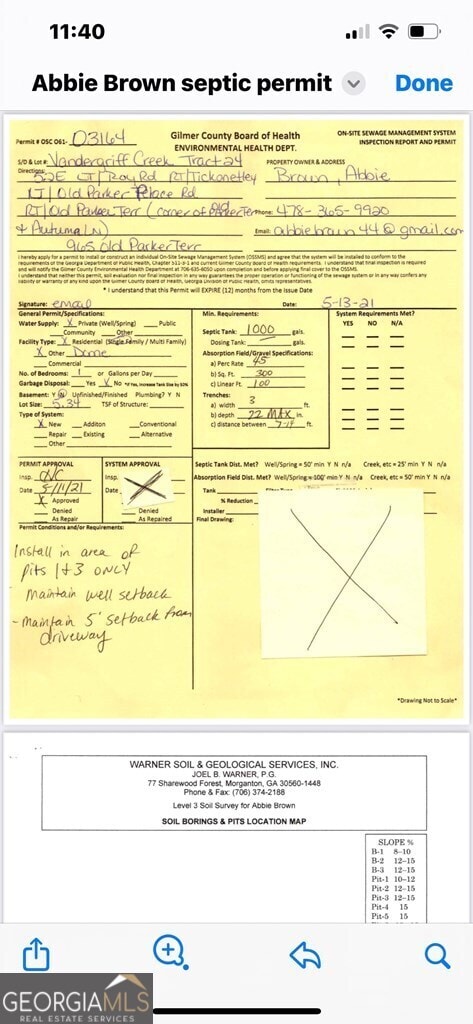 11:40
Abbie Brown septic permit
Done
Permit # OSC 061- 03164
Gilmer County Board of Health
ENVIRONMENTAL HEALTH DEPT.
ON-SITE SEWAGE MANAGEMENT SYSTEM
INSPECTION REPORT AND PERMIT
S/D & Lot #: Vandergriff Creek Tract 24
PROPERTY OWNER & ADDRESS
Directions: 52E LT/ Roy Rd RT/Tickonetley
Brown, Abbie
LT/ Old Parker Place Rd
RT/ Old Parker Terr (corner of Old Parker Terr
Phone: 478-365-9920
& Autumn LN)
Email: abbiebrown44@gmail.com
9165 Old Parker Terr
I hereby apply for a permit to construct or install an individual On-Site Sewage Management System (OSSMS) and agree that the system will be installed to conform to the
requirements of the Georgia Department of Public Health, Chapter 511-3-1 and current Gilmer County Board of Health requirements. I understand that final inspection is required
and will notify the Gilmer County Environmental Health Department at 706-635-6050 upon completion and before applying final cover to the OSSMS.
I understand that neither this permit, soil evaluation nor final inspection in any way guarantees the proper operation or functioning of the sewage system or in any way confers any
liability or warranty of any kind upon the Gilmer County Board of Health, Georgia Division of Public Health, or its representatives.
* I understand that this Permit will EXPIRE (12) months from the Issue Date
Signature: email
Date: 5-13-21
General Permit/Specifications:
Min. Requirements:
System Requirements Met?
Water Supply: X Private (Well/Spring) Public
YES NO N/A
Community Other
Septic Tank: 1000 gals.
Facility Type: X Residential (Single Family / Multi Family)
Dosing Tank: gals.
X Other Dome
Absorption Field/Gravel Specifications:
Commercial
a) Perc Rate 45
No. of Bedrooms: 1 or Gallons per Day
b) Sq. Ft. 300
Garbage Disposal: Yes X No *If Yes, Increase Tank Size by 50%
c) Linear Ft. 100
Basement: Y N Unfinished/Finished Plumbing? Y N
Trenches:
Lot Size: 5.34 TSF of Structure:
a) width 3 ft.
Type of System:
b) depth 22 MAX in.
X New Additon Conventional
c) distance between 7-14 ft.
Repair Existing Alternative
Other
PERMIT APPROVAL
SYSTEM APPROVAL
Septic Tank Dist. Met? Well/Spring = 50' min Y N n/a Creek, etc = 25' min Y N n/a
Insp.
Insp.
Absorption Field Dist. Met? Well/Spring = 100' min Y N n/a Creek, etc = 50' min Y N n/a
Date 5/11/21
Date
Tank
X Approved
% Reduction
Denied
Denied
Installer
As Repair
As Repaired
Final Drawing:
Permit Conditions and/or Requirements:
Install in area of
pits 1+3 ONLY
maintain well setback
- maintain 5' setback from
driveway
*Drawing Not to Scale*
WARNER SOIL & GEOLOGICAL SERVICES, INC.
JOEL B. WARNER, P.G.
77 Sharewood Forest, Morganton, GA 30560-1448
Phone & Fax: (706) 374-2188
Level 3 Soil Survey for Abbie Brown
SOIL BORINGS & PITS LOCATION MAP
SLOPE %
B-1 8-10
B-2 12-15
B-3 12-15
Pit-1 10-12
Pit-2 12-15
Pit-3 12-15
Pit-4 15
Pit-5 15
GEORGIAMLS
REAL ESTATE SERVICES